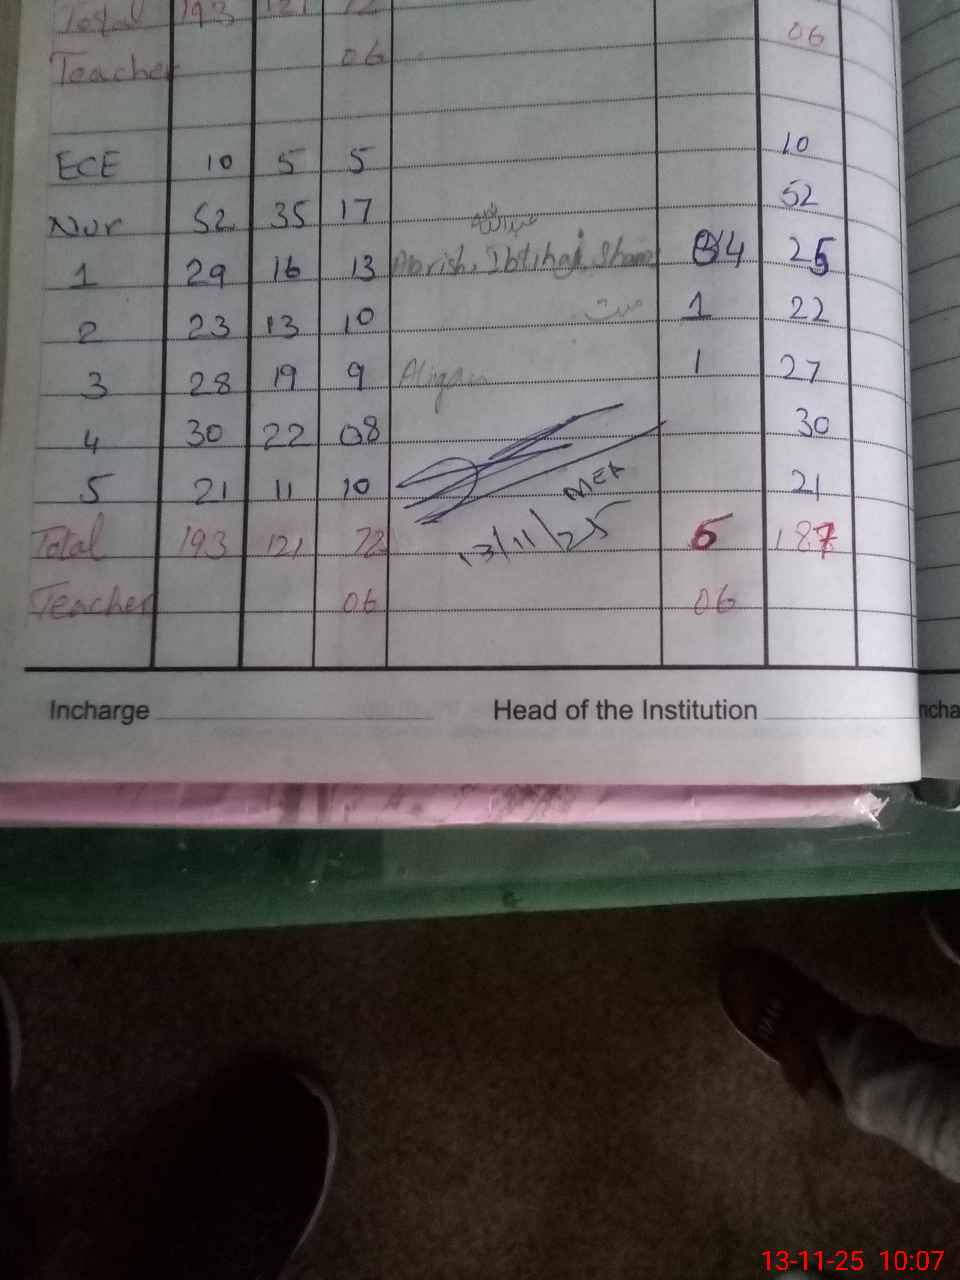 Total 193 121 72
06
Teacher 06
ECE 10 5 5 10
Nur 52 35 17 52
عبداللہ
1 29 16 13 Abrish, Ibtihaj, Sham 4 25
2 23 13 10 1 22
3 28 19 9 1 27
4 30 22 08 30
5 21 11 10 21
MEA
13/11/25
Total 193 121 72 6 187
Teacher 06 06
Incharge Head of the Institution
ncha
13-11-25 10:07